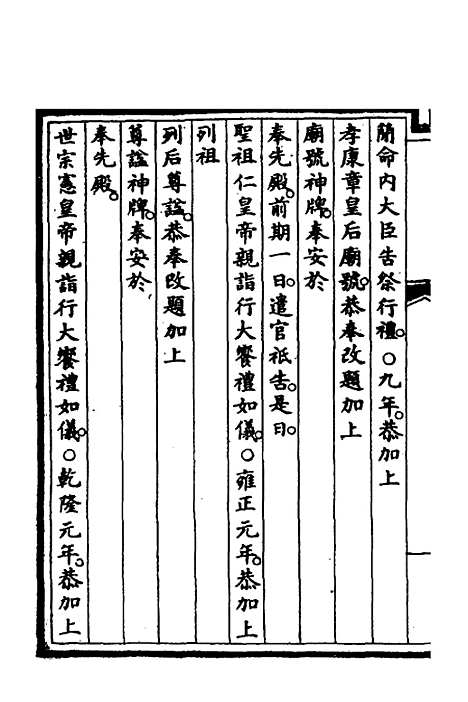 簡命內大臣告祭行禮。○九年。恭加上
孝康章皇后廟號。恭奉改題加上
廟號神牌。奉安於
奉先殿。前期一日。遣官祗告。是日。
聖祖仁皇帝親詣行大饗禮如儀。○雍正元年。恭加上
列祖
列后尊諡。恭奉改題加上
尊諡神牌。奉安於
奉先殿。
世宗憲皇帝親詣行大饗禮如儀。○乾隆元年。恭加上